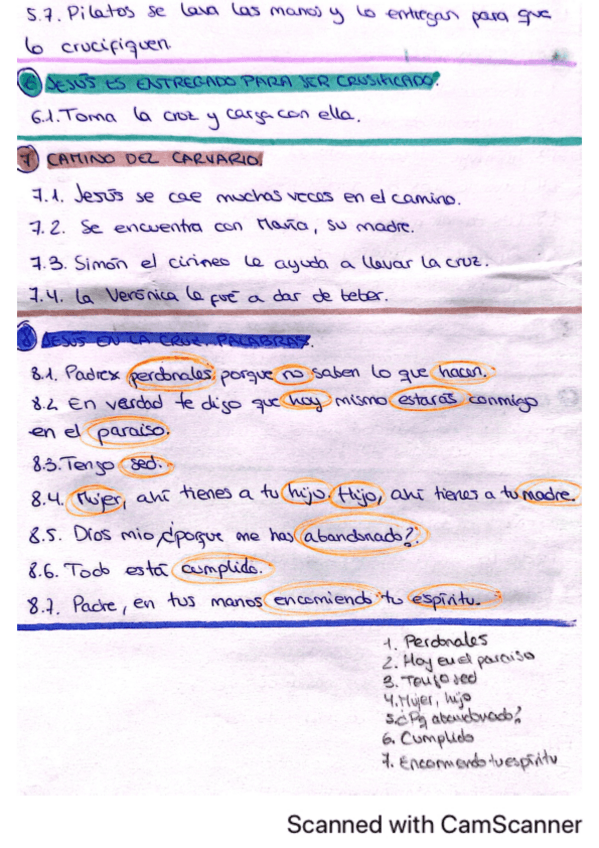 5.7. Pilatos se lava las manos y lo entregan para que
lo crucifiquen.
6 JESÚS ES ENTREGADO PARA SER CRUSIFICADO.
6.1. Toma la cruz y carga con ella.
7 CAMINO DEL CARVARIO.
7.1. Jesús se cae muchas veces en el camino.
7.2. Se encuentra con María, su madre.
7.3. Simón el cirineo le ayuda a llevar la cruz.
7.4. La Verónica le fué a dar de beber.
8 JESÚS EN LA CRUZ, PALABRAS.
8.1. Padre perdonales porque no saben lo que hacen.
8.2. En verdad te digo que hoy mismo estarás conmigo
en el paraiso.
8.3. Tengo sed.
8.4. Mujer, ahí tienes a tu hijo. Hijo, ahí tienes a tu madre.
8.5. Dios mio, ¿porque me has abandonado?.
8.6. Todo está cumplido.
8.7. Padre, en tus manos encomiendo tu espíritu.
1. Perdonales
2. Hoy en el paraiso
3. Tengo sed
4. Mujer, hijo
5. ¿Pq abandonado?
6. Cumplido
7. Encomiendo tu espíritu
Scanned with CamScanner